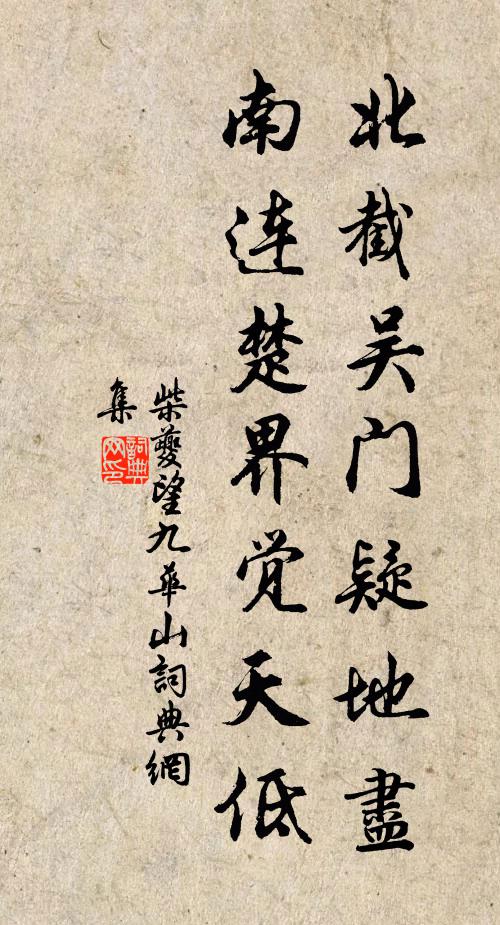 北截吴门疑地盡
南连楚界觉天低
柴夔望九華山詞典網
集
詞典
网印